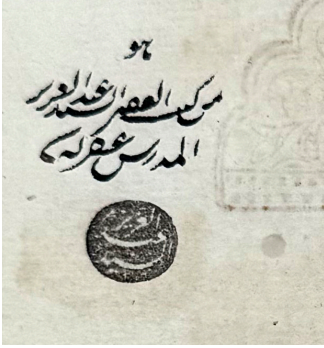 هو
من كتب الفقير السيد عبد العزيز
المدرس غفر له